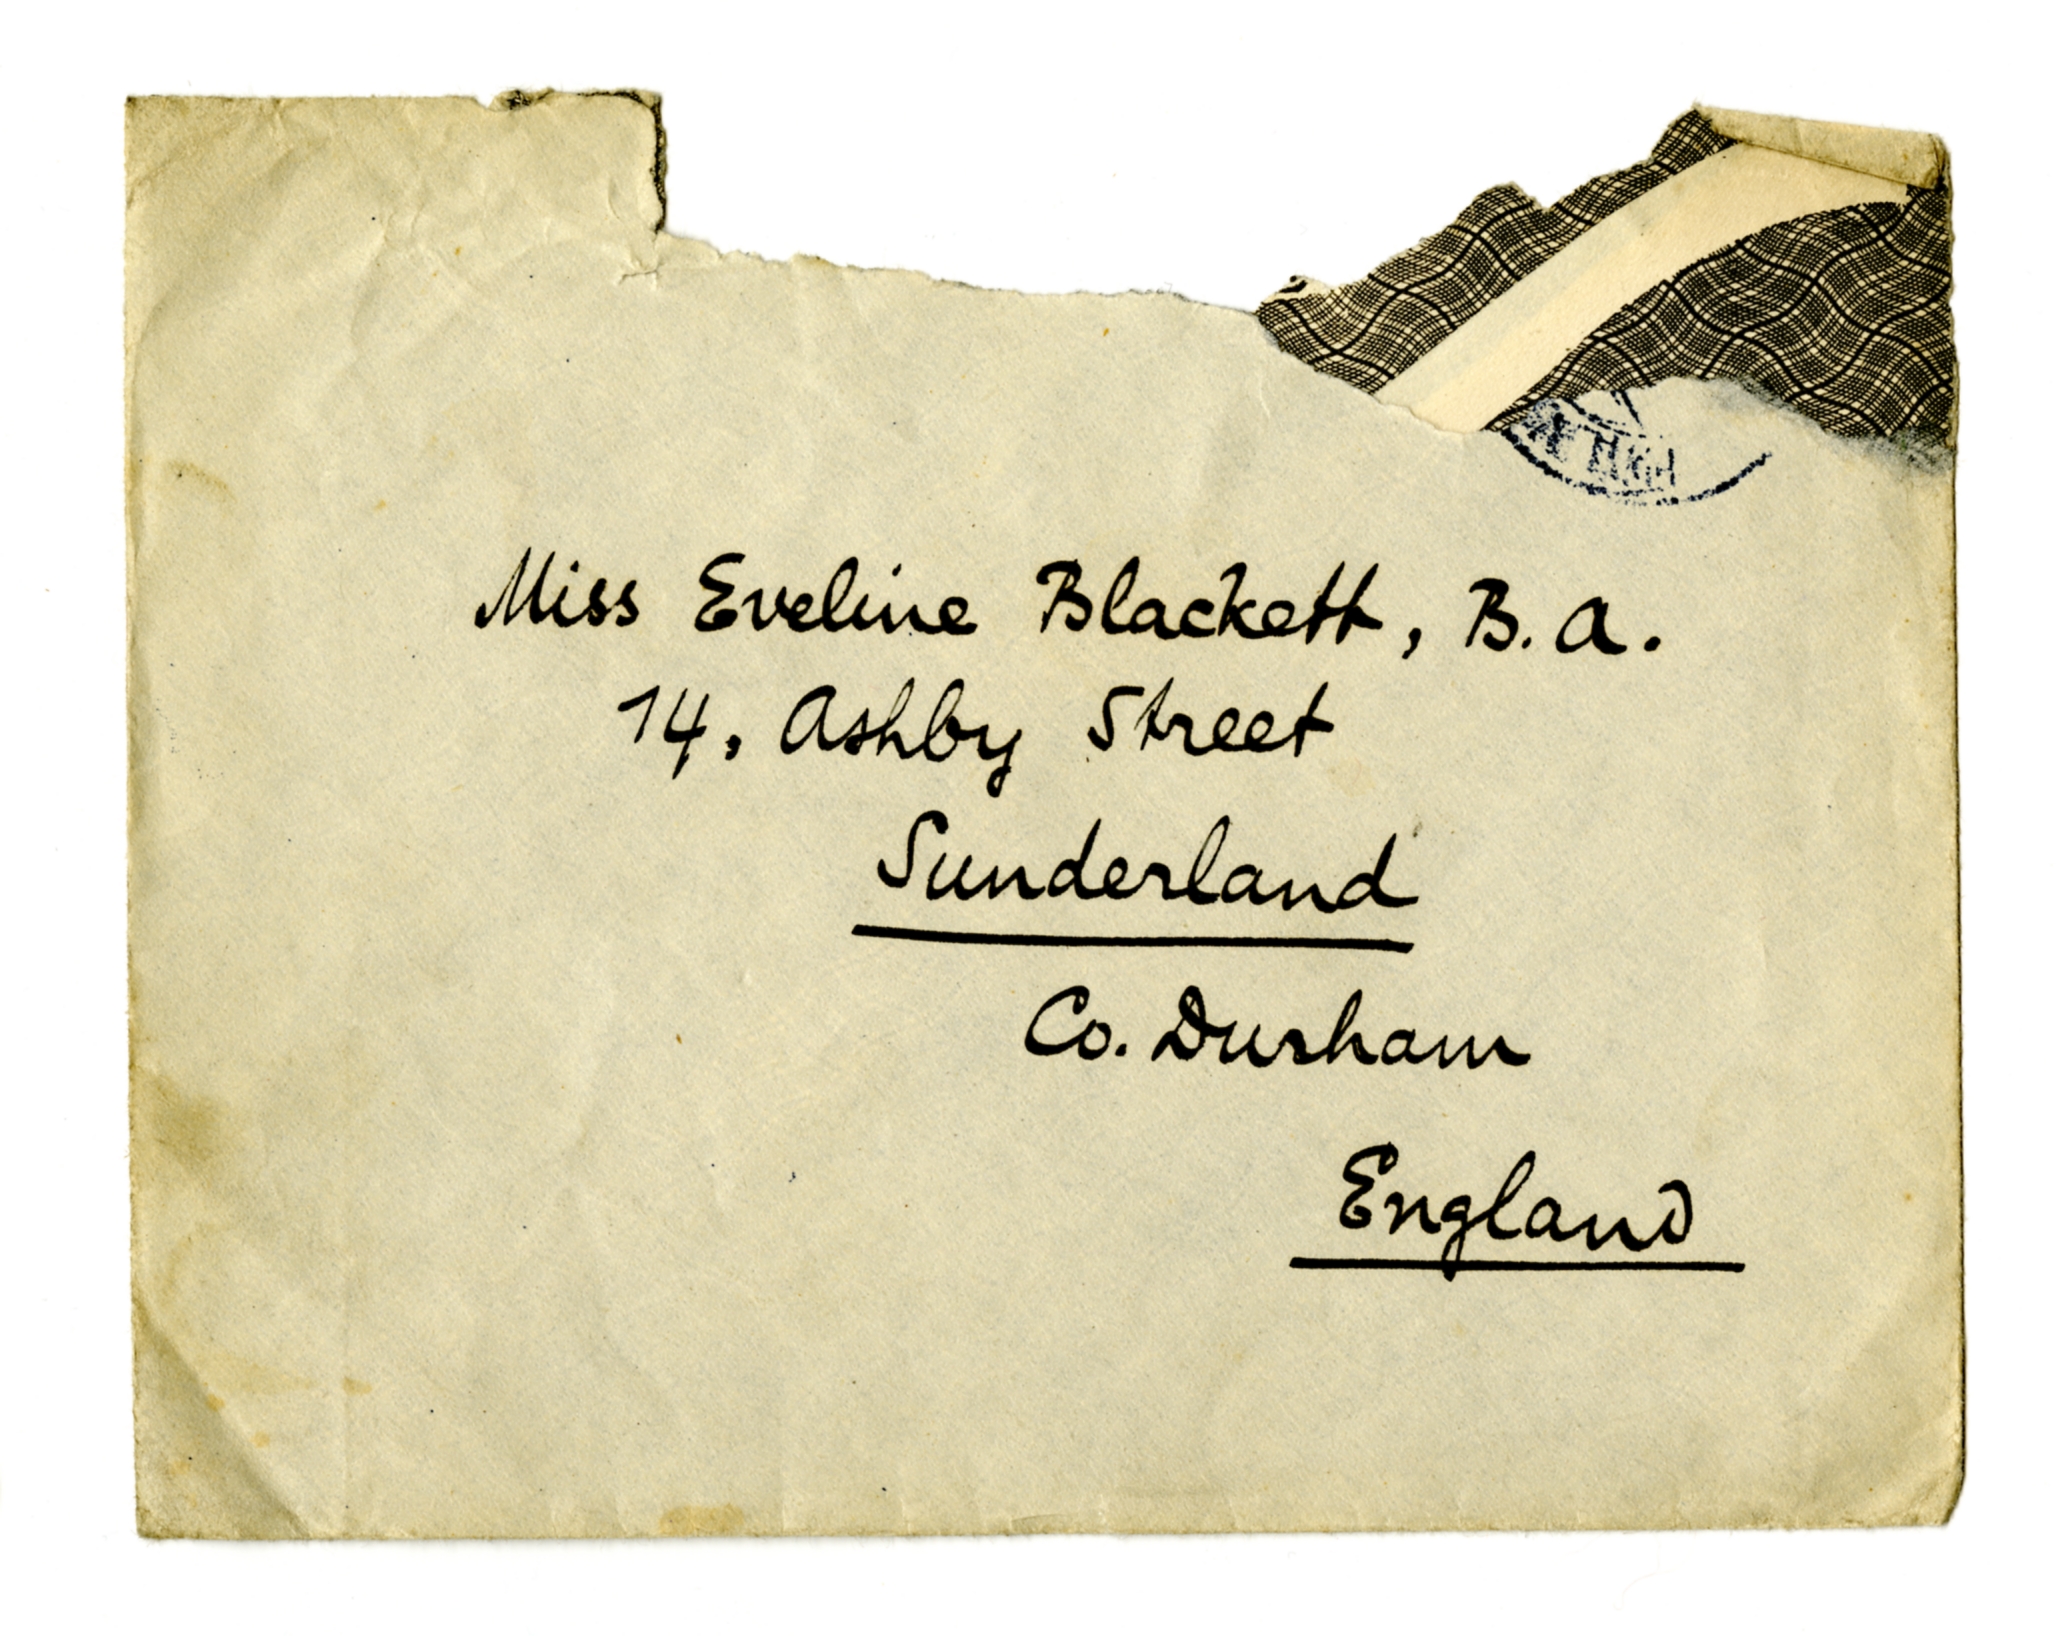 Miss Eveline Blackett, B.A.
14, Ashby Street
Sunderland
Co. Durham
England